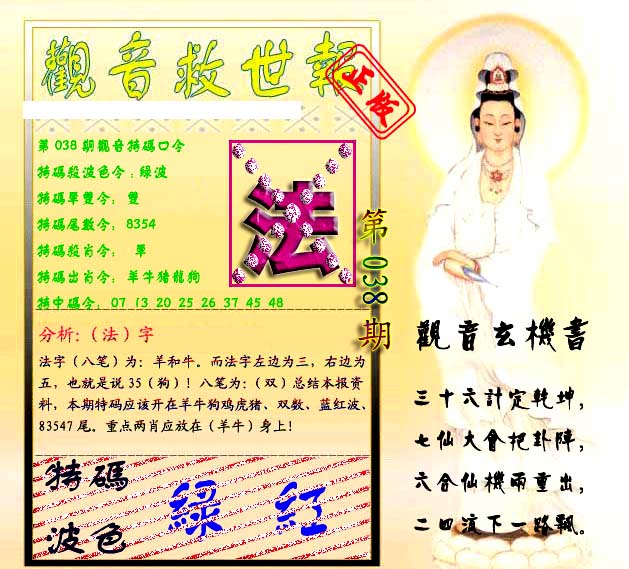 觀音救世報
正版
第 038 期觀音特碼口令
特碼殺波色令：綠波
特碼單雙令： 雙
特碼尾數令： 8354
特碼殺肖令： 單
特碼出肖令： 羊牛猪龍狗
特中碼令： 07 13 20 25 26 37 45 48
法
第 038 期
分析:（法）字
法字（八笔）为：羊和牛。而法字左边为三，右边为
五，也就是说 35（狗）！八笔为：（双）总结本报资
料，本期特码应该开在羊牛狗鸡虎猪、双数、蓝红波、
83547 尾。重点两肖应放在（羊牛）身上！
特碼
波色
綠 紅
觀音玄機書
三十六計定乾坤，
七仙大會把卦陣，
六合仙機兩重出，
二四流下一路飄。